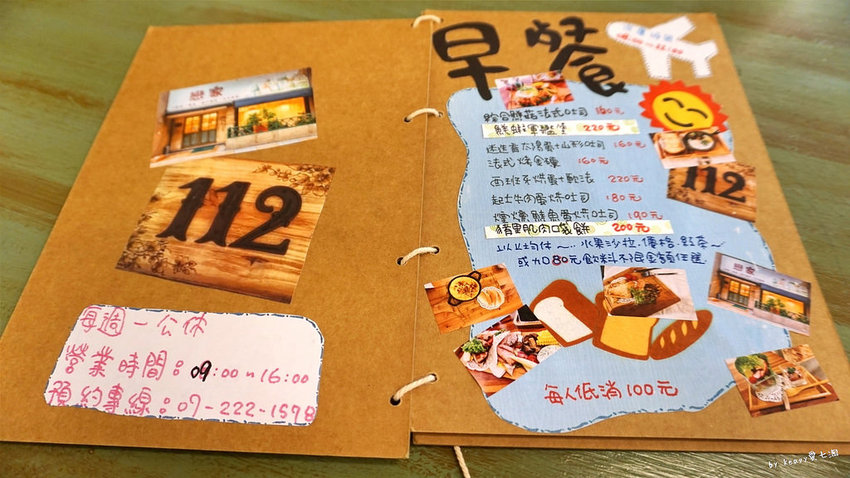 戀家
112
每週一公休
營業時間：09:00~16:00
預約專線：07-222-1598
早餐
綜合鮮菇法式吐司 160元
220元
迷迭香太陽蛋+山形吐司 160元
法式烤金磚 160元
西班牙烘蛋+軟法 220元
起士牛肉蛋烤吐司 180元
煙燻鮭魚蛋烤吐司 190元
猪里肌肉口袋餅 200元
以上均付~水果沙拉.優格.紅茶~
或加80元飲料不限金額任選
112
每人低消100元
by keavy愛七淘